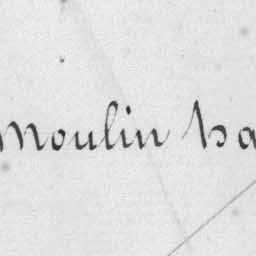 Moulin ba